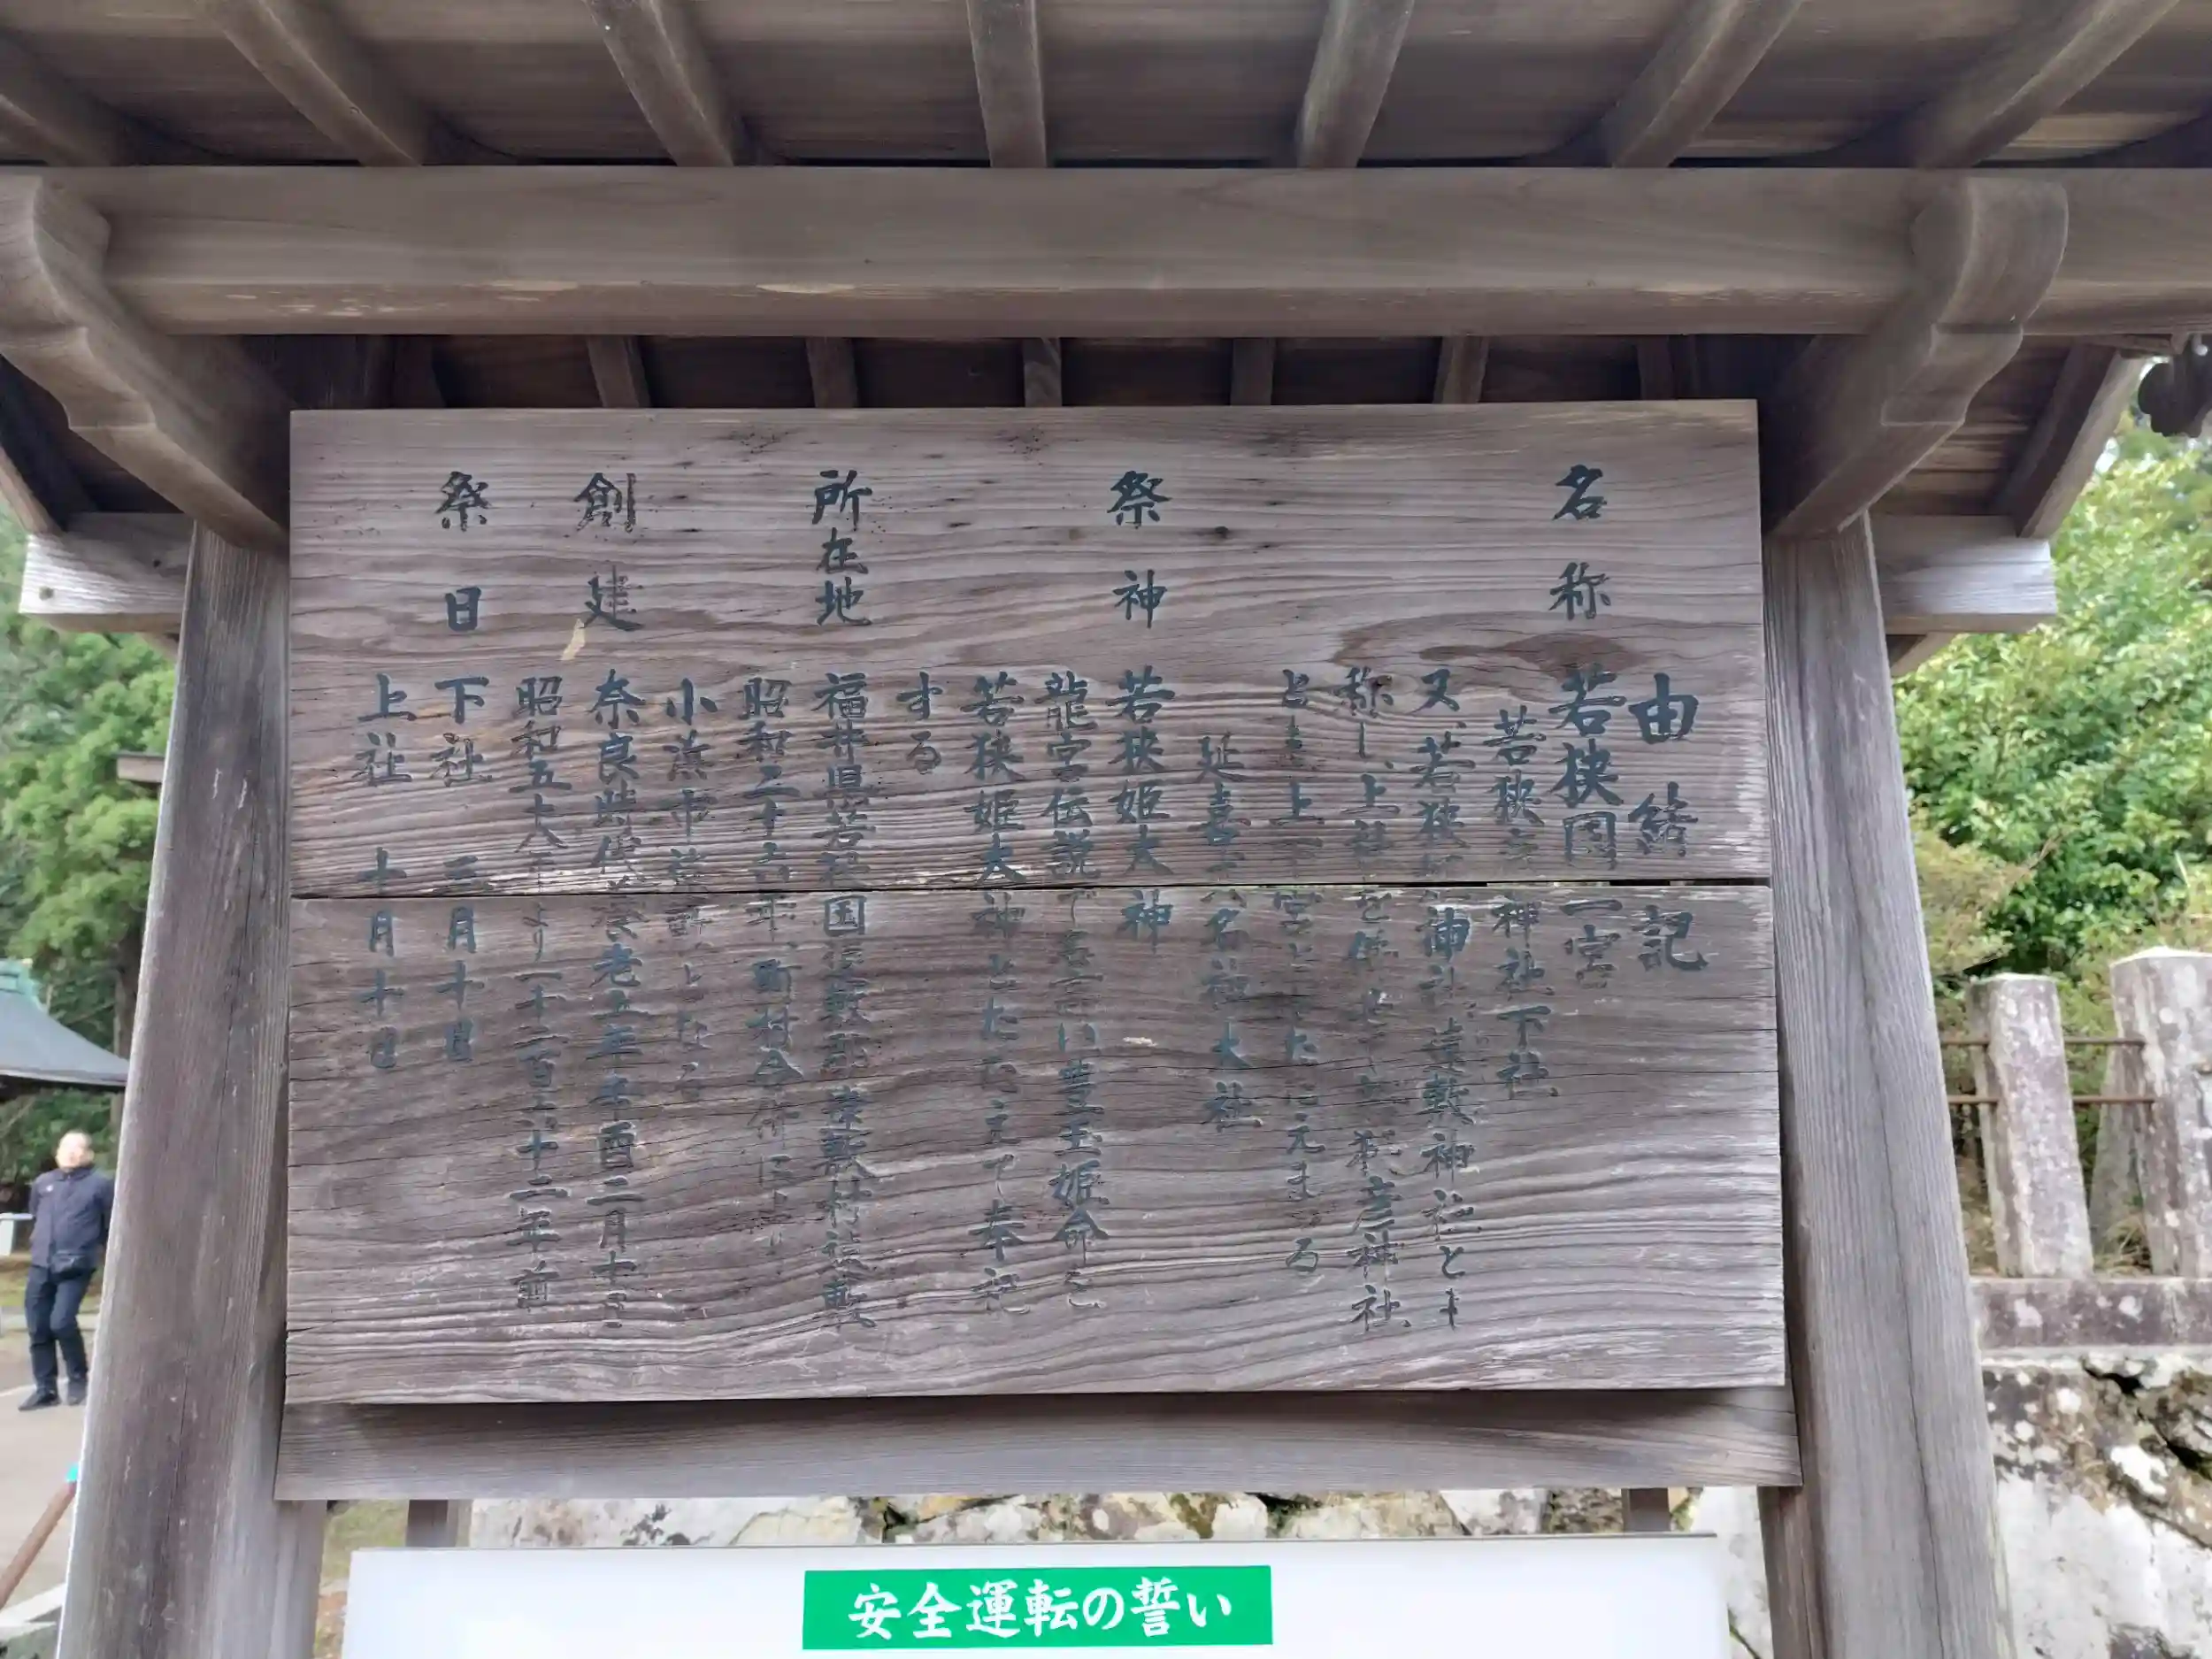 由緒記
名称 若狭国一宮
若狭彦神社下社
又、若狭姫神社遠敷神社とも
称し、上社を併せて若狭彦神社
とも上下宮ととなえまつる
延喜式名社大社
祭神 若狭姫大神
龍宮伝説で名高い豊玉姫命を
若狭姫大神とたたえて奉祀
する
所在地 福井県若狭国遠敷郡遠敷村遠敷
昭和二十六年、町村合併により
小浜市遠敷となる
創建 奈良時代養老五年辛酉二月十
昭和五十八年より一千二百六十二年前
祭日 下社 三月十日
上社 十月十日
安全運転の誓い